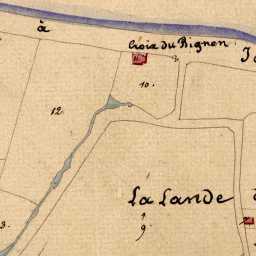 à
Croix du Bignon
10.
12.
La Lande
9.
3.